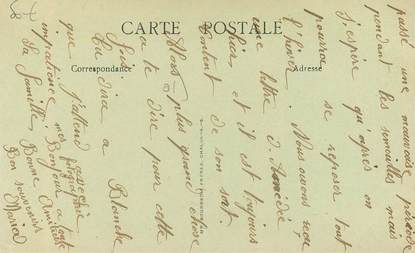 CARTE POSTALE
Correspondance
Adresse
passé une mauvaise période
pendant les semailles mais
j'espère qu'après on
pourra se reposer tout
l'hiver. Nous avons reçu
une lettre d'Amédée
hier et il est toujours
content de son sort.
Alors plus grand chose
à te dire pour cette
fois
Tu diras à Blanche
que j'attend
mes photographie
impatience Bonjour a toute
la famille Bonne Amitiés
Bon souvenir
Maria